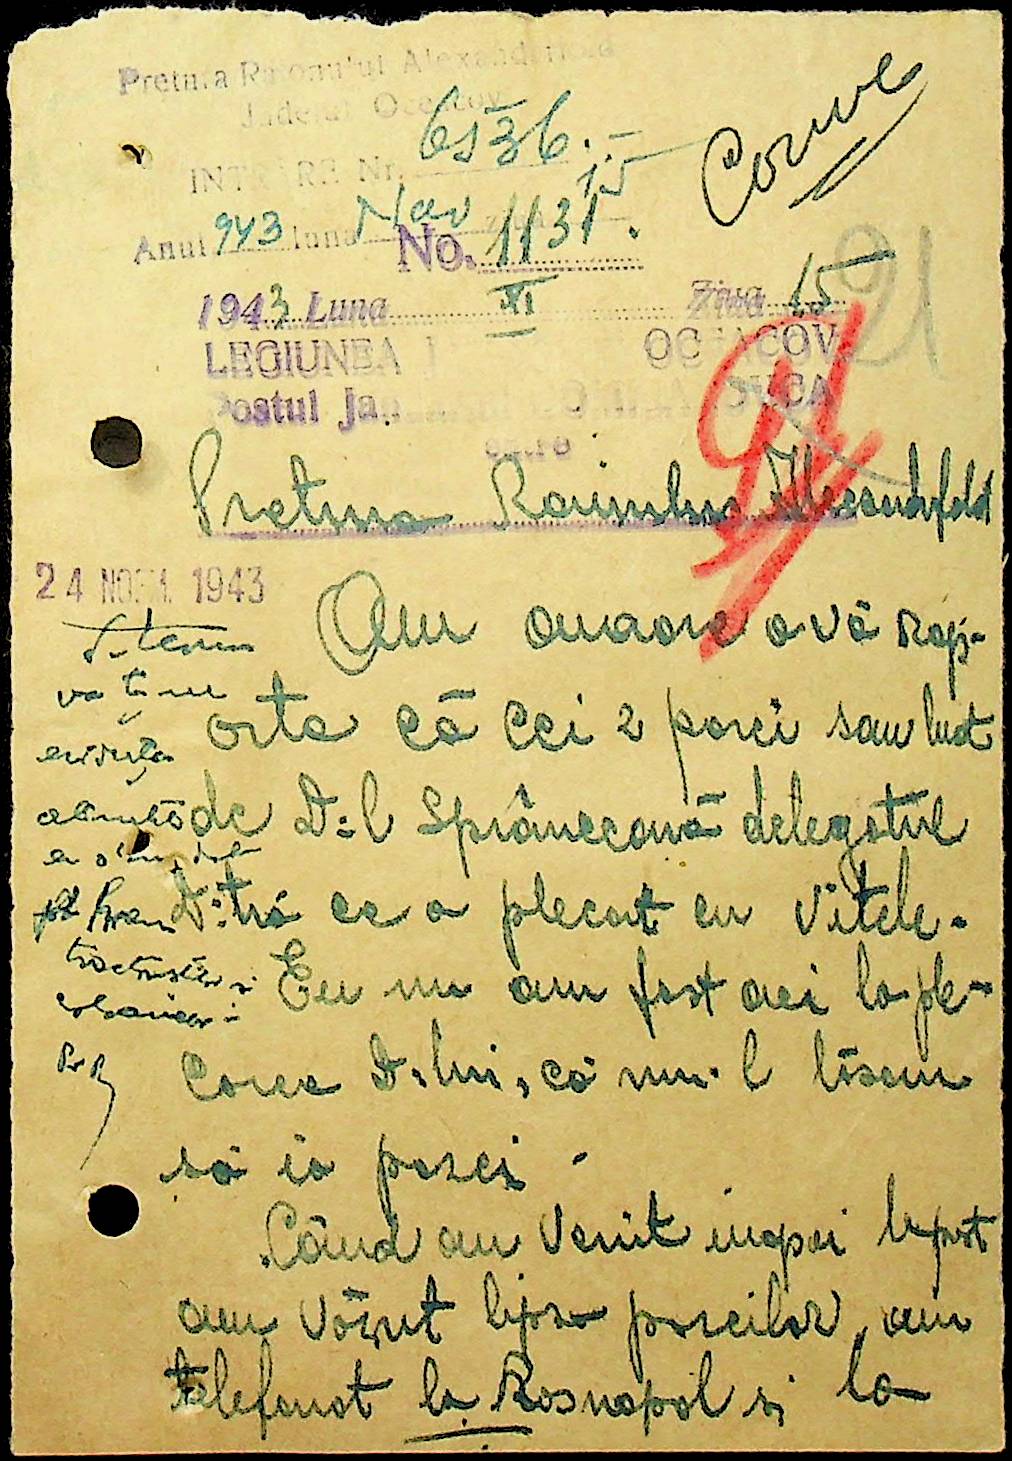 Pretura Raionului Alexanderfeld
Judetul Oceacov
INTRARE Nr. 6536.-
Anul 943 luna Nov ziua 15
Carne
No. 1131.
1943 Luna XI Ziua 15
21
LEGIUNEA J OCEACOV
Postul Ja.
către
Pretura Raionului Alexandrfeld
24 NOEM. 1943
Am onoare a vă rap-
orta că cei 2 porci sau luat
de D-l Sprânceană delegatul
D-tră ce a plecat cu vitele.
Eu nu am fost aci la ple-
carea D-lui, că nu-l lăsam
să ia porci.
Când am venit inapoi la post
am văzut lipsa porcilor, am
telefonat la Rasnopol si la
va ține
evidența